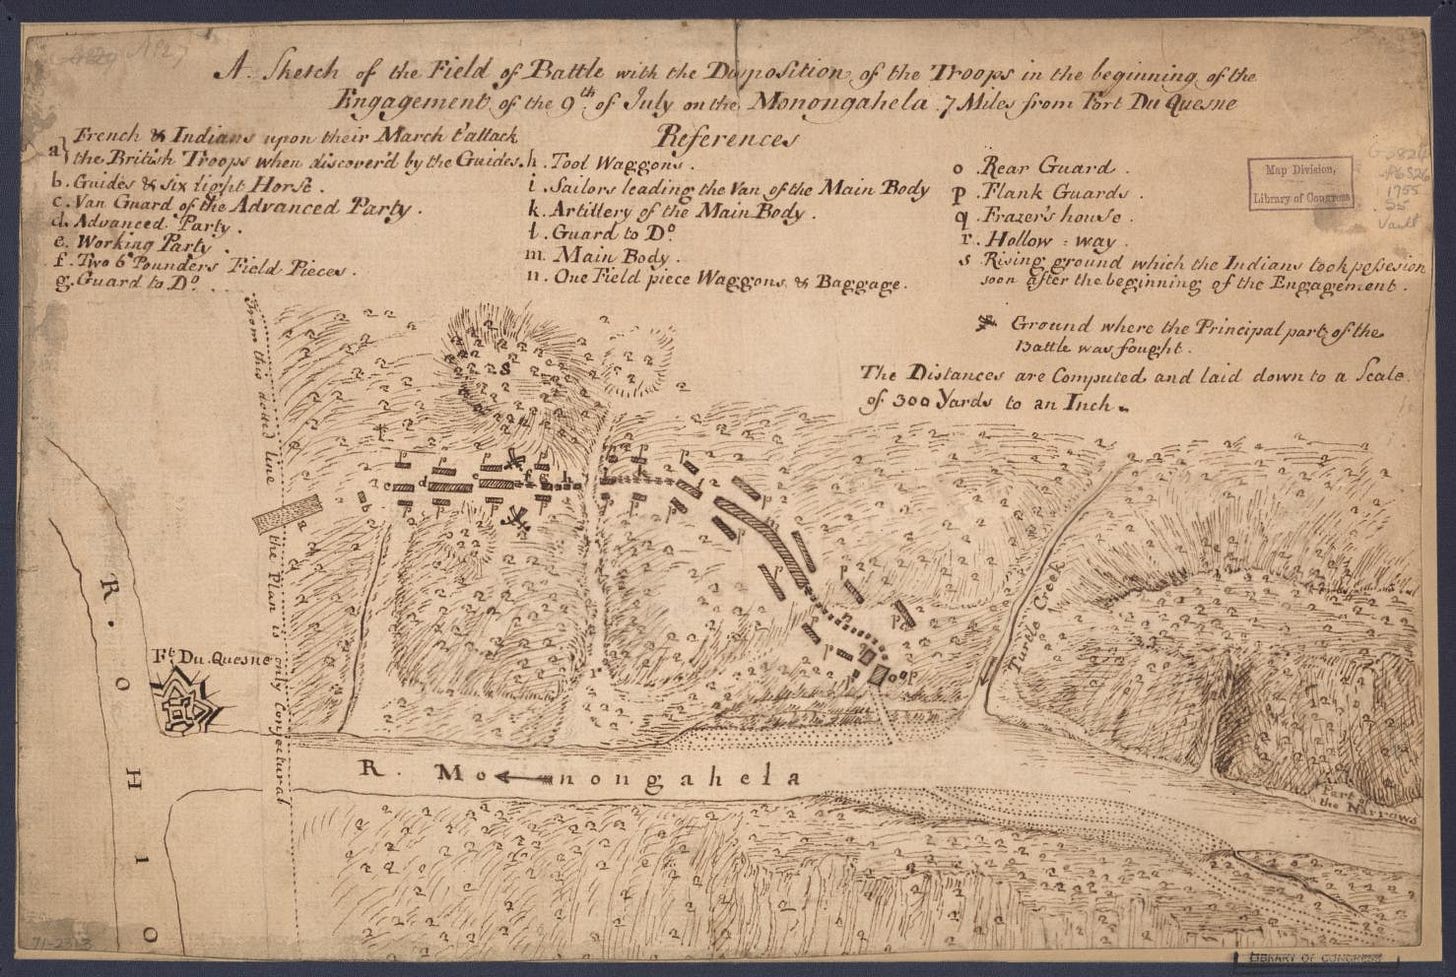 A Sketch of the Field of Battle with the Disposition of the Troops in the beginning of the
Engagement of the 9th of July on the Monongahela 7 Miles from Fort Du Quesne
References
a} French & Indians upon their March t'attack
the British Troops when discover'd by the Guides.
b. Guides & six light Horse.
c. Van Guard of the Advanced Party.
d. Advanced Party.
e. Working Party.
f. Two 6 Pounders Field Pieces.
g. Guard to Do.
h. Tool Waggons.
i. Sailors leading the Van of the Main Body
k. Artillery of the Main Body.
l. Guard to Do.
m. Main Body.
n. One Field piece Waggons & Baggage.
o. Rear Guard.
p. Flank Guards.
q. Frazer's house.
r. Hollow : way.
s. Rising ground which the Indians took possesion
soon after the beginning of the Engagement.
Ground where the Principal part of the
Battle was fought.
The Distances are Computed and laid down to a Scale
of 300 Yards to an Inch.
Map Division,
Library of Congress
1755
Vault
From this doted line the Plan is only Conjectural
R. OHIO
Ft Du. Quesne
Turtle Creek
R. Monongahela
Part of
the Narrows
71-2313
LIBRARY OF CONGRESS